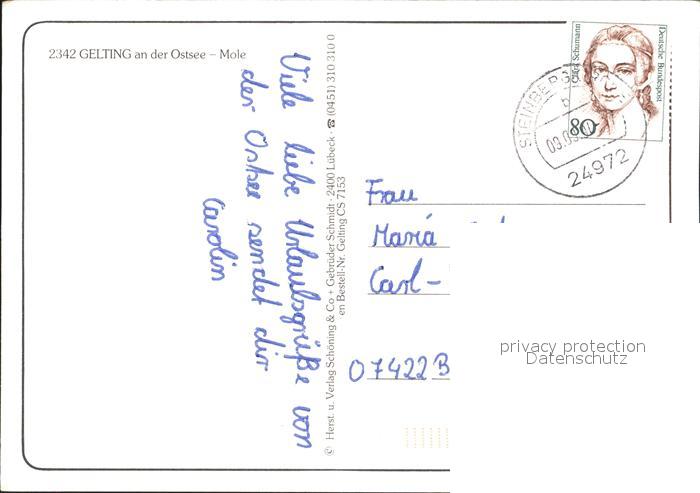 2342 GELTING an der Ostsee – Mole
Viele liebe Urlaubsgrüße von
der Ostsee sendet dir
Carolin
© Herst. u. Verlag Schöning & Co + Gebrüder Schmidt · 2400 Lübeck · ☎ (0451) 310 310 0
en Bestell-Nr. Gelting CS 7153
Clara Schumann
Deutsche Bundespost
80
STEINBERG
b
24972
Frau
Maria
Carl-
07422 B
privacy protection
Datenschutz